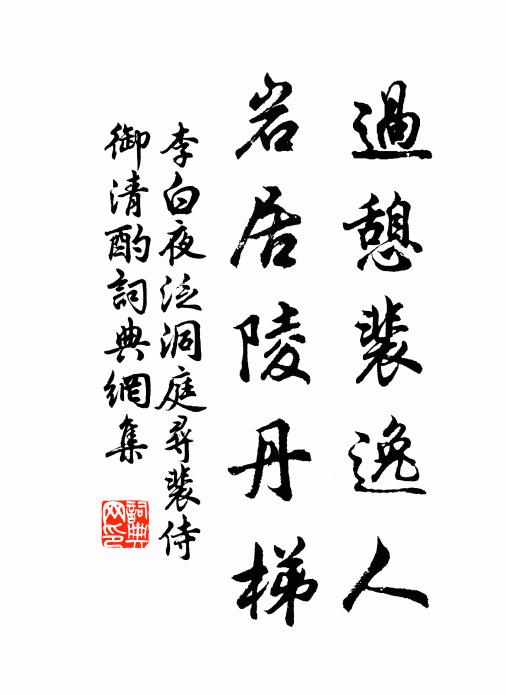 過憩裴逸人
岩居陵丹梯
李白夜泛洞庭尋裴侍
御清酌詞典網集
詞典網印